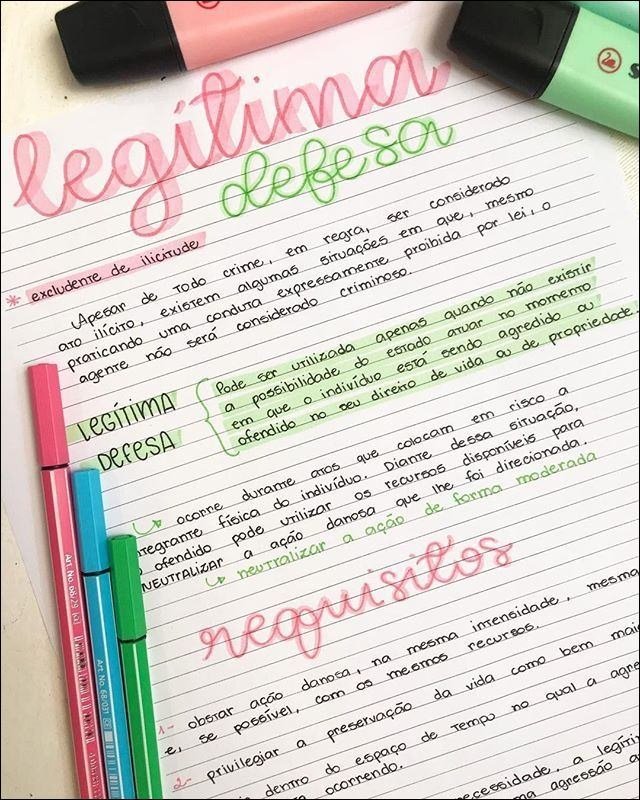 legítima
defesa
* excludente de ilicitude
Apesar de todo crime, em regra, ser considerado
ato ilícito, existem algumas situações em que, mesmo
praticando uma conduta expressamente proibida por lei, o
agente não será considerado criminoso.
LEGÍTIMA
DEFESA
Pode ser utilizada apenas quando não existir
a possibilidade do estado atuar no momento
em que o indivíduo está sendo agredido ou
ofendido no seu direito de vida ou de propriedade.
ocorre durante atos que colocam em risco a
integrante física do indivíduo. Diante dessa situação,
o ofendido pode utilizar os recursos disponíveis para
NEUTRALIZAR a ação danosa que lhe foi direcionada.
neutralizar a ação de forma moderada
requisitos
1- obstar ação danosa, na mesma intensidade, mesma
e, se possível, com os mesmos recursos.
2- privilegiar a preservação da vida como bem mais
dentro do espaço de tempo no qual a agre
ocorrendo.
necessidade, a legíti
uma agressão a
Art. No. 68/29
Art. No. 68/031